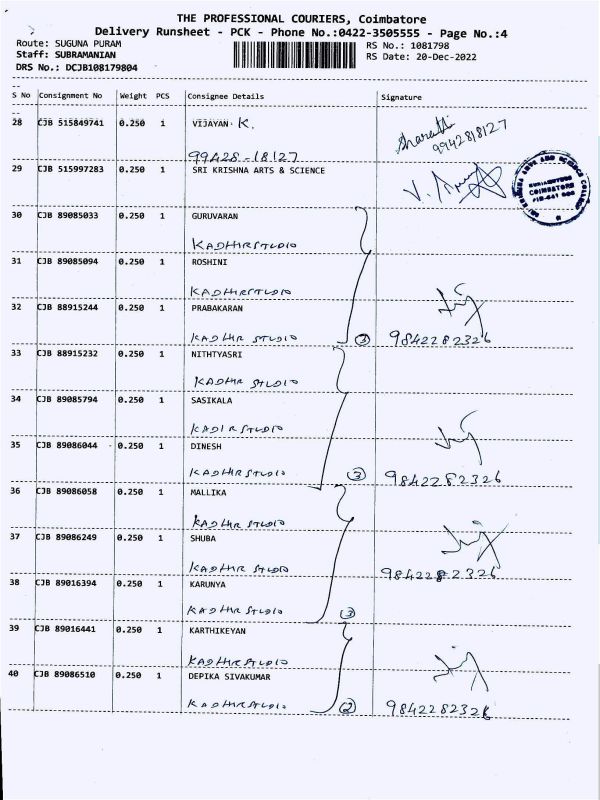 THE PROFESSIONAL COURIERS, Coimbatore
Delivery Runsheet - PCK - Phone No.:0422-3505555 - Page No.:4
Route: SUGUNA PURAM
RS No.: 1081798
Staff: SUBRAMANIAN
RS Date: 20-Dec-2022
DRS No.: DCJB108179804
S No Consignment No Weight PCS Consignee Details Signature
28 CJB 515849741 0.250 1 VIJAYAN K.
Sharath
9942818127
99428-18127
29 CJB 515997283 0.250 1 SRI KRISHNA ARTS & SCIENCE
COIMBATORE
30 CJB 89085033 0.250 1 GURUVARAN
KADHIR STUDIO
31 CJB 89085094 0.250 1 ROSHINI
KADHIR STUDIO
32 CJB 88915244 0.250 1 PRABAKARAN
KADHIR STUDIO 3 9842282326
33 CJB 88915232 0.250 1 NITHTYASRI
KADHIR STUDIO
34 CJB 89085794 0.250 1 SASIKALA
KADIR STUDIO
35 CJB 89086044 0.250 1 DINESH
KADHIR STUDIO 3 9842282326
36 CJB 89086058 0.250 1 MALLIKA
KADHIR STUDIO
37 CJB 89086249 0.250 1 SHUBA
KADHIR STUDIO 9842282326
38 CJB 89016394 0.250 1 KARUNYA
KADHIR STUDIO 3
39 CJB 89016441 0.250 1 KARTHIKEYAN
KADHIR STUDIO
40 CJB 89086510 0.250 1 DEPIKA SIVAKUMAR
KADHIR STUDIO 2 9842282326